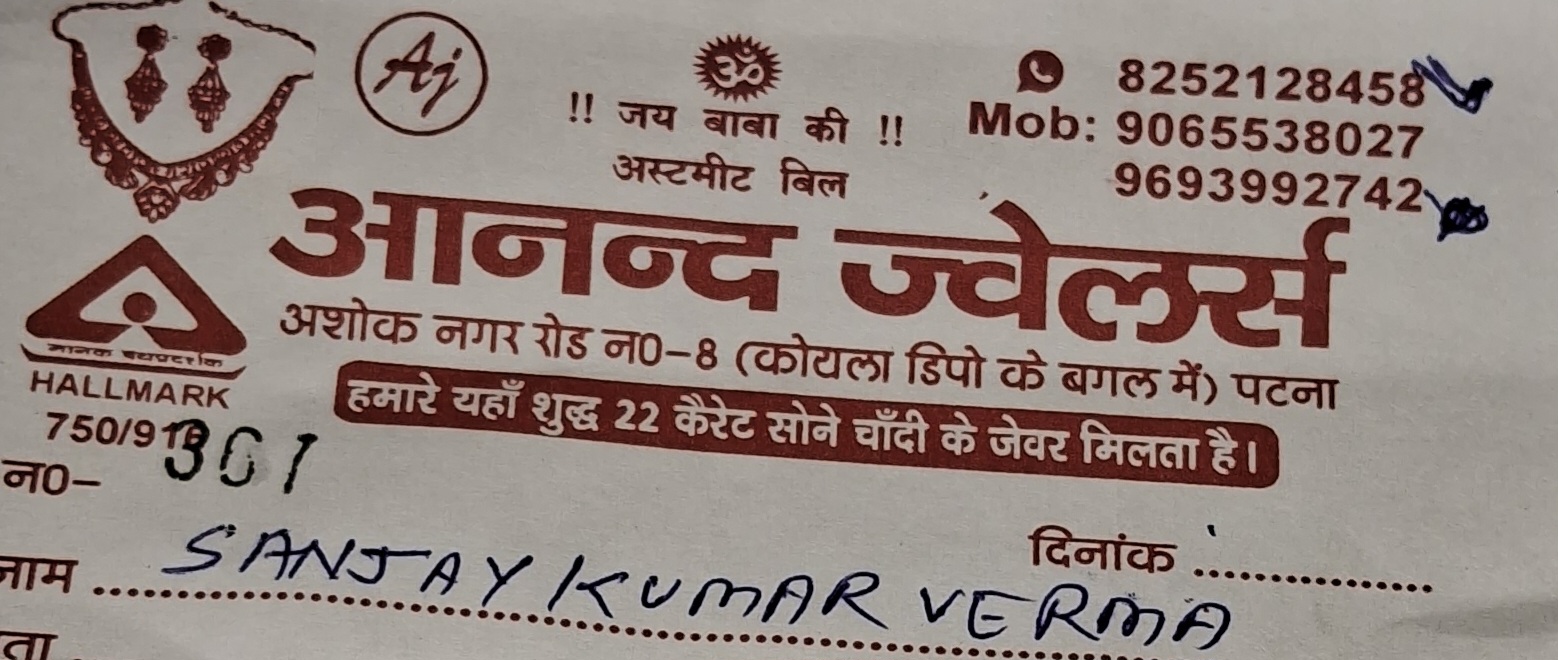 Aj
ॐ
!! जय बाबा की !!
अस्टमीट बिल
8252128458
Mob: 9065538027
9693992742
आनन्द ज्वेलर्स
अशोक नगर रोड न0-8 (कोयला डिपो के बगल में) पटना
हमारे यहाँ शुद्ध 22 कैरेट सोने चाँदी के जेवर मिलता है।
मानक पथप्रदर्शक
HALLMARK
750/916
न0- 361
दिनांक ..................
नाम .......... SANJAY KUMAR VERMA